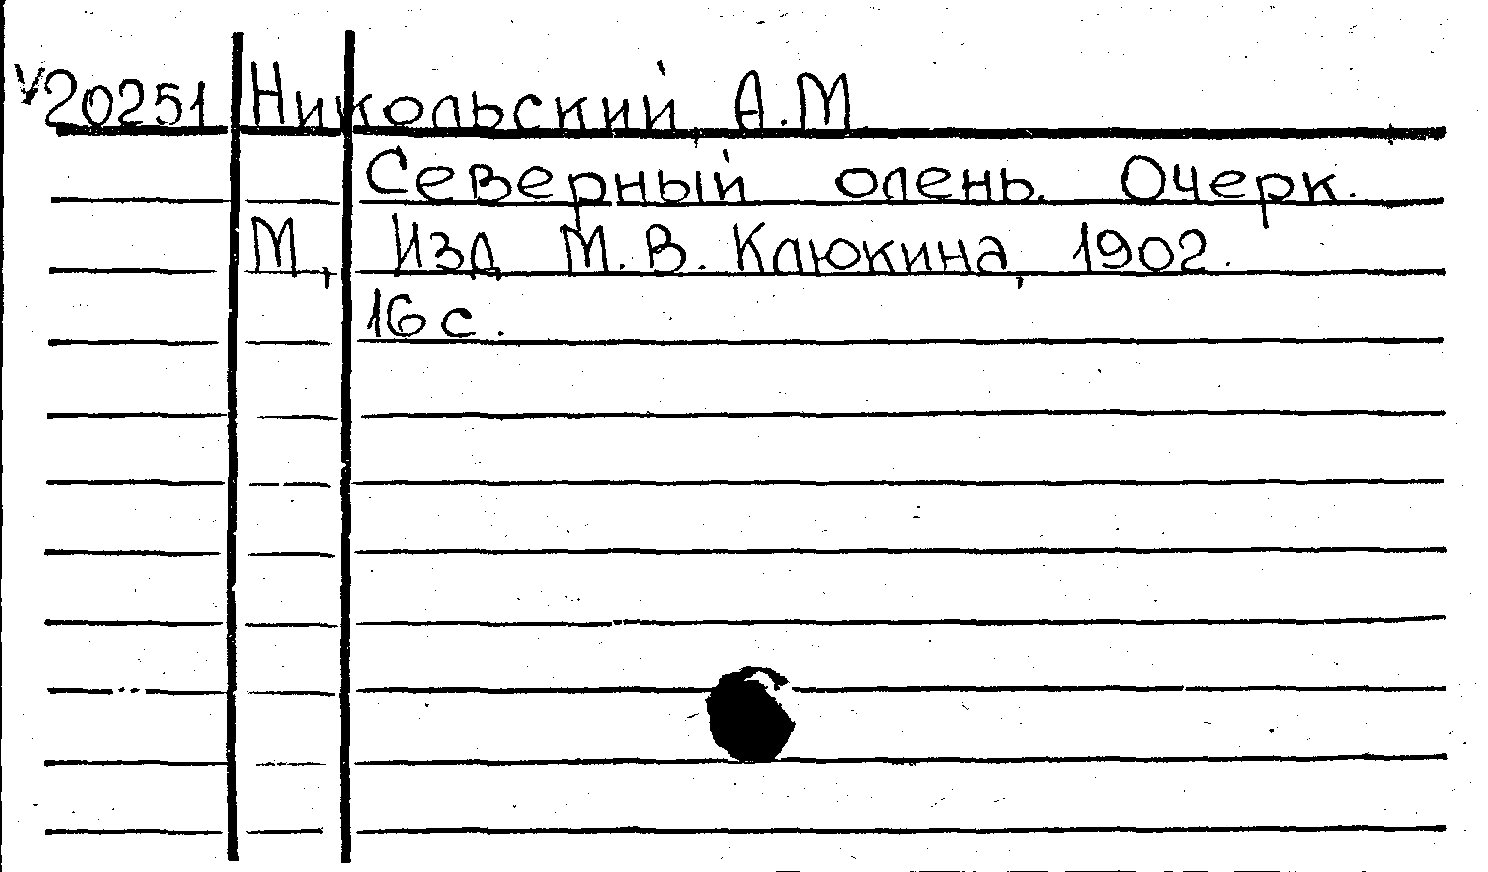 V20251 Никольский, А.М
Северный олень. Очерк.
М, Изд М.В. Клюкина, 1902.
16 с.